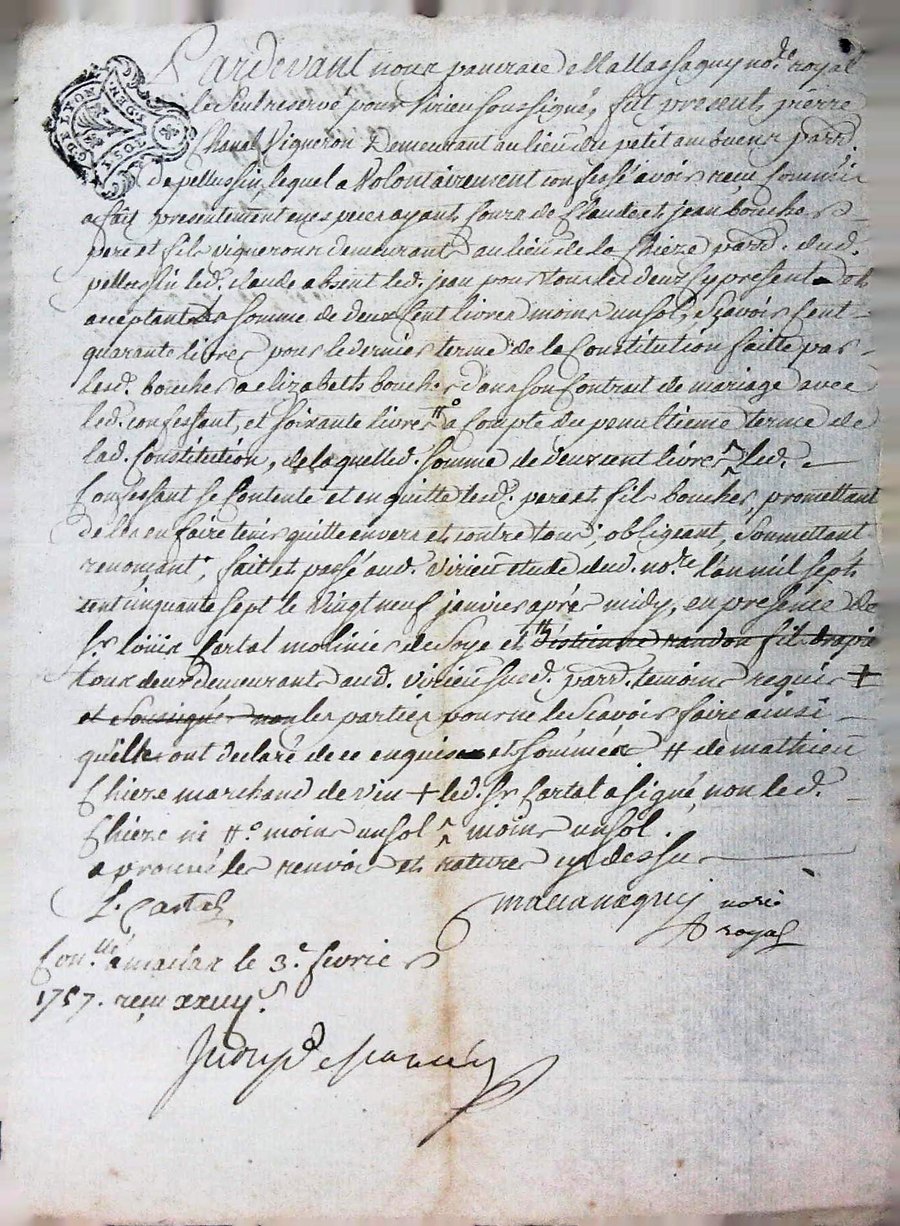 G. DE LYON
2 S. DEN.
Pardevant nous pancrace De Mallassagny no.re royal
le seul reservé pour Virieu soussigné, fut present pierre
Chaval Vigneron Demeurant au lieu du petit ambuent parr.
de pellussin lequel a Volontairement confessé avoir reçu comme il
a fait presentement en especes ayant cours de Claude et jean boucher
pere et fils vignerons demeurant au lieu de la Chieze parr. dud.
pellussin led. claude absent led. jean pour tous les deux cy present et
acceptant la somme de deux Cent livres moins un sol, scavoir Cent
quarante livres pour le dernier terme de la Constitution faitte par
lesd. boucher a elizabeth boucher dans son Contrait de mariage avec
led. confessant, et soixante livres # a compte du penultieme terme de
lad. Constitution, de laquelle d. somme de deux cent livres led.
Confessant se Contente et en quitte lesd. pere et fils boucher, promettant
de les en faire tenir quitte envers et contre tous, obligeant, soumettant
renonçant, fait et passé aud. Virieu etude dud. no.re l'an mil sept
cent cinquante sept le Vingt neuf janvier aprés midy, en presence de
Sr. Louis Cartal molinier de soye et # estienne randon fils drapier
tous deux demeurants aud. Virieu sus d. parr. temoins requis +
et soussignés non les parties pour ne le scavoir faire ainsi
qu'elles ont declaré de ce enquises et sommées. # de mathieu
Chieze marchand de vin + led. Sr. Cartal a signé, non led.
Chieze ni #o moins un sol moins un sol.
aprouvé les renvois et ratures cy dessus
L. Cartal
mallassagny no.re
royal
Con.llé a maclas le 3.e fevrier
1757. reçu